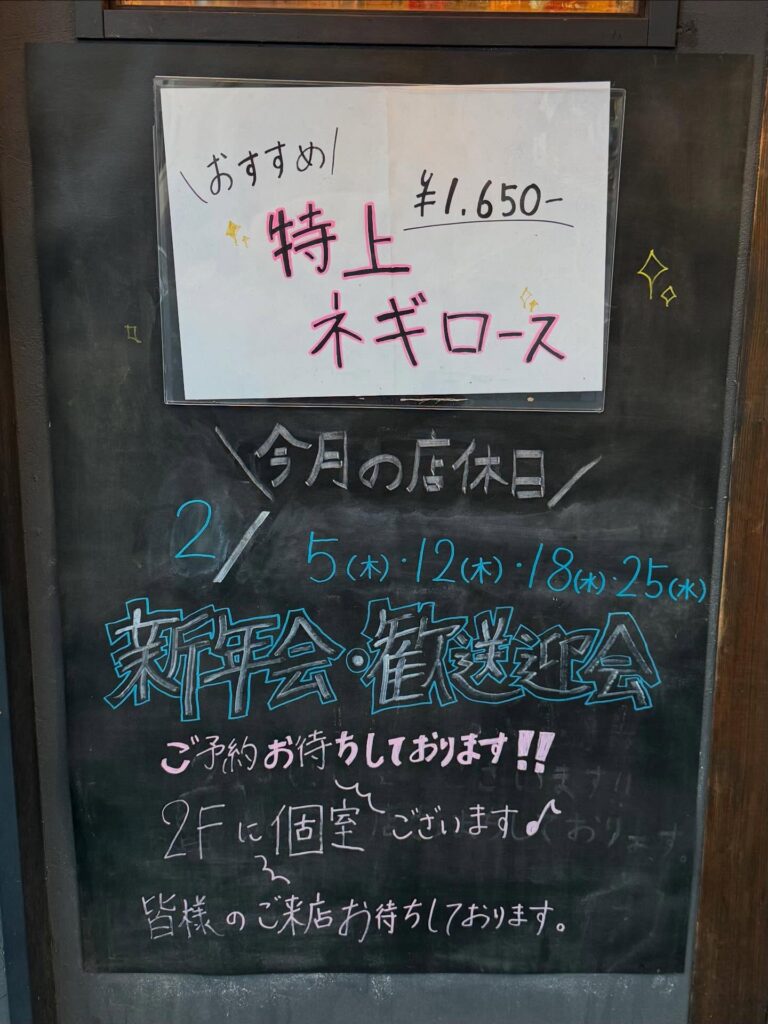 \おすすめ/
¥1,650-
特上
ネギロース
\今月の店休日/
2/
5(木)・12(木)・18(水)・25(水)
新年会・歓送迎会
ご予約お待ちしております!!
2Fに個室ございます♪
皆様のご来店お待ちしております。